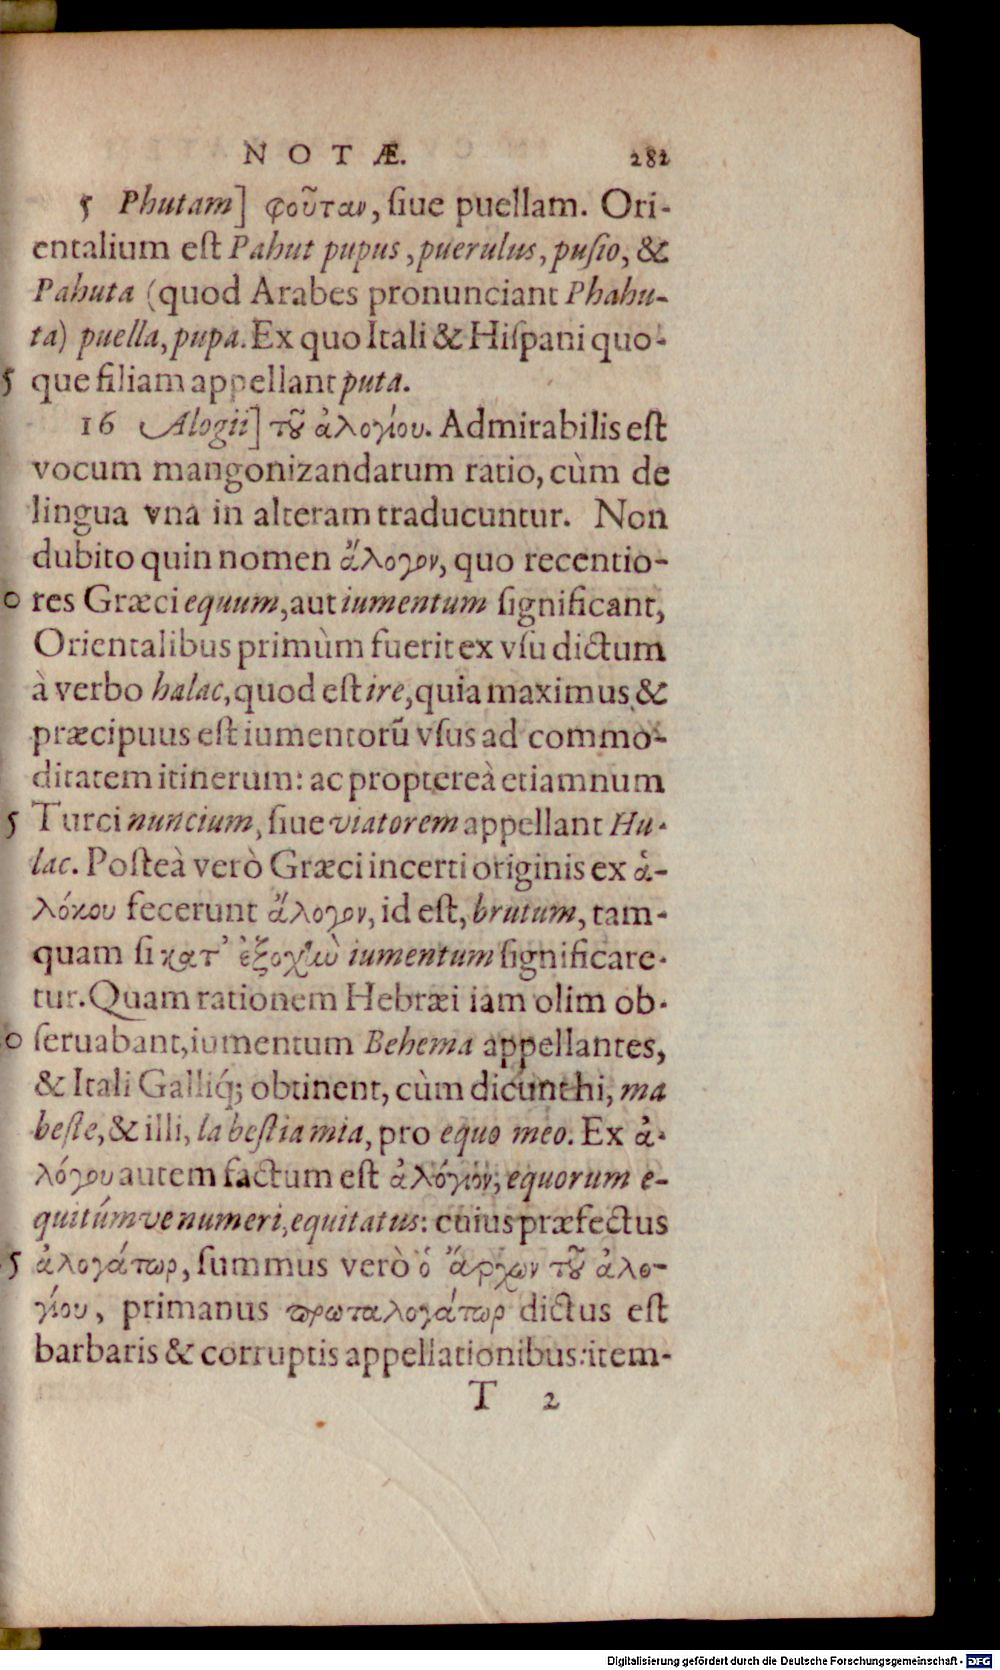 NOTÆ. 282
5 Phutam] φοῦταν, ſiue puellam. Ori-
entalium eſt Pahut pupus, puerulus, puſio, &
Pahuta (quod Arabes pronunciant Phahu-
ta) puella, pupa. Ex quo Itali & Hiſpani quo-
5 que filiam appellant puta.
16 Alogii] τȣ͂ ἀλογίου. Admirabilis eſt
vocum mangonizandarum ratio, cùm de
lingua vna in alteram traducuntur. Non
dubito quin nomen ἄλογον, quo recentio-
0 res Græci equum, aut iumentum ſignificant,
Orientalibus primùm fuerit ex vſu dictum
à verbo halac, quod eſt ire, quia maximus &
præcipuus eſt iumentorū vſus ad commo-
ditatem itinerum: ac proptereà etiamnum
5 Turci nuncium, ſiue viatorem appellant Hu-
lac. Poſteà verò Græci incerti originis ex ἀ-
λόκου fecerunt ἄλογον, id eſt, brutum, tam-
quam ſi κατ' ἐξοχὴν iumentum ſignificare-
tur. Quam rationem Hebræi iam olim ob-
0 ſeruabant, iumentum Behema appellantes,
& Itali Galliq́; obtinent, cùm dicunt hi, ma
beſte, & illi, la beſtia mia, pro equo meo. Ex ἀ-
λόγου autem factum eſt ἀλόγιον, equorum e-
quitúmve numeri, equitatus: cuius præfectus
5 ἀλογάτωρ, ſummus verò ὁ ἄρχων τȣ͂ ἀλο-
γίου, primanus πρωταλογάτωρ dictus eſt
barbaris & corruptis appellationibus: item-
T 2
Digitalisierung gefördert durch die Deutsche Forschungsgemeinschaft - DFG